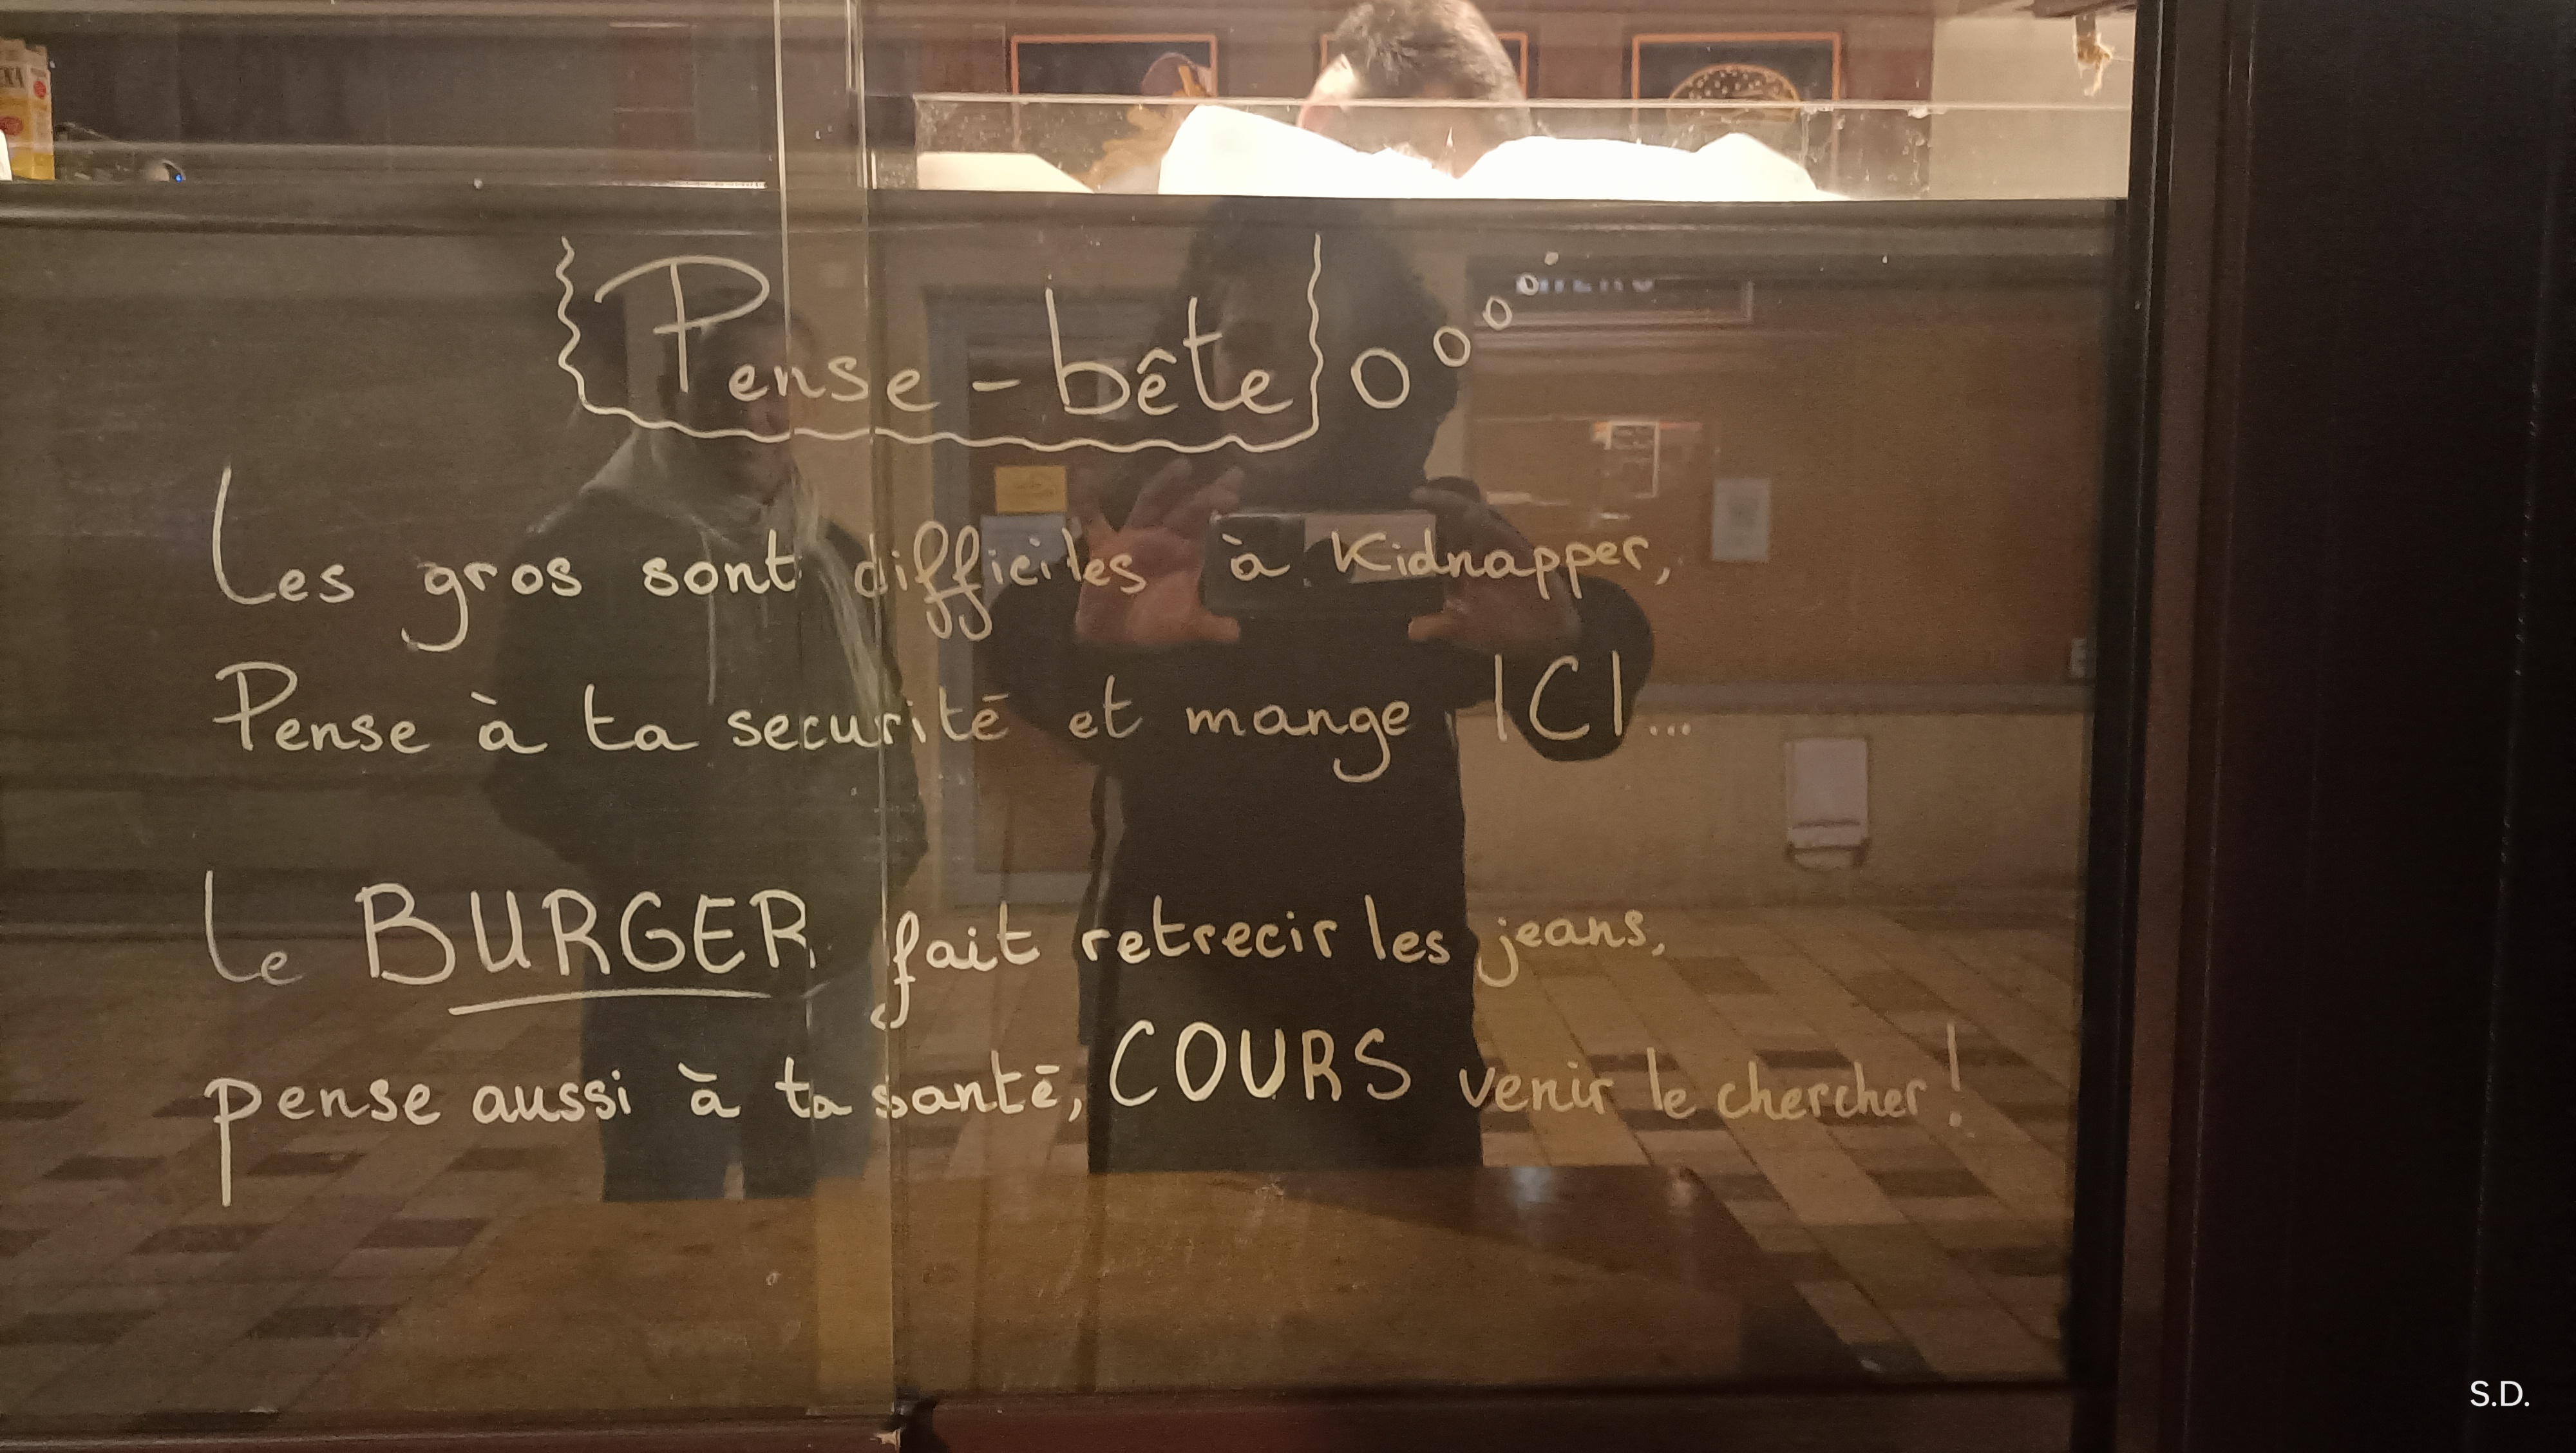 Pense-bête
Les gros sont difficiles à Kidnapper,
Pense à ta securité et mange ICI...
Le BURGER fait retrecir les jeans,
pense aussi à ta santé, COURS venir le chercher!
S.D.